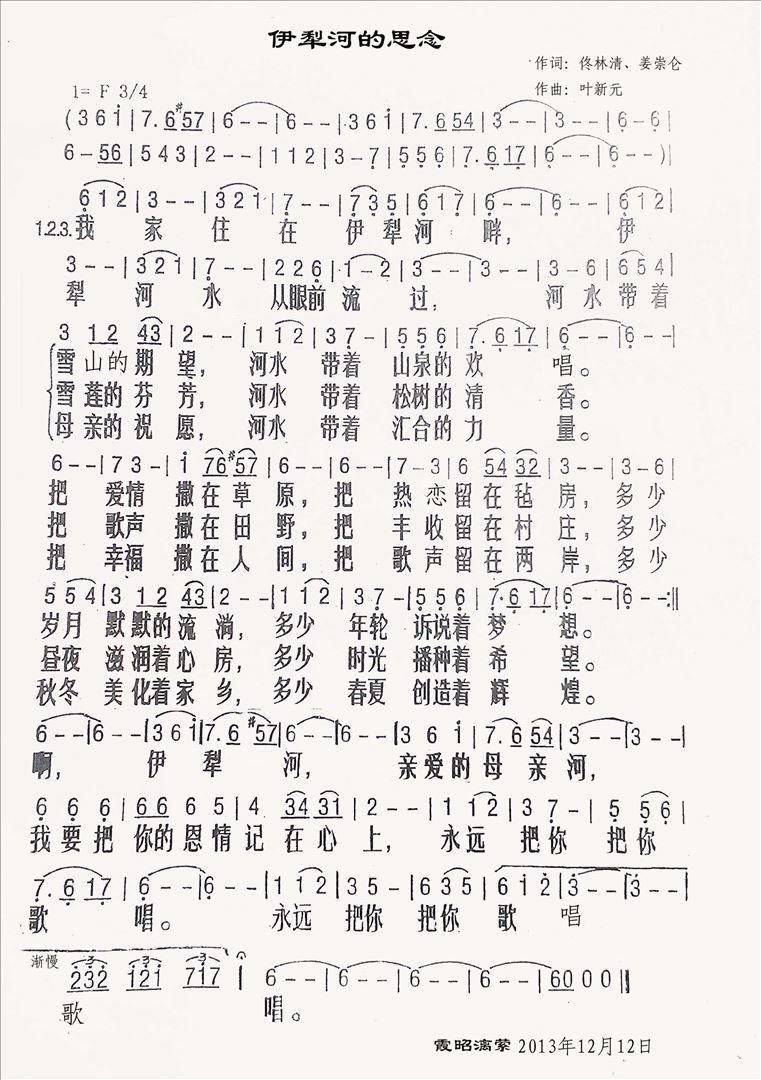 伊犁河的思念
作词：佟林清、姜崇仑
1= F 3/4
作曲：叶新元
(3 6 i | 7. 6 #5 7 | 6 - - | 6 - - | 3 6 i | 7. 6 5 4 | 3 - - | 3 - - | 6 - 6 |
6 - 5 6 | 5 4 3 | 2 - - | 1 1 2 | 3 - 7 | 5 5 6 | 7. 6 1 7 | 6 - - | 6 - - ) |
6 1 2 | 3 - - | 3 2 1 | 7 - - | 7 3 5 | 6 1 7 | 6 - - | 6 - - | 6 1 2 |
1.2.3.我 家 住 在 伊 犁 河 畔， 伊
3 - - | 3 2 1 | 7 - - | 2 2 6 | 1 - 2 | 3 - - | 3 - - | 3 - 6 | 6 5 4 |
犁 河 水 从眼前 流 过， 河 水 带着
3 1 2 4 3 | 2 - - | 1 1 2 | 3 7 - | 5 5 6 | 7. 6 1 7 | 6 - - | 6 - - |
雪 山的 期 望， 河水 带着 山泉的 欢 唱。
雪 莲的 芬 芳， 河水 带着 松树的 清 香。
母 亲的 祝 愿， 河水 带着 汇合的 力 量。
6 - - | 7 3 - | i 7 6 #5 7 | 6 - - | 6 - - | 7 - 3 | 6 5 4 3 2 | 3 - - | 3 - 6 |
把 爱情 撒 在 草 原， 把 热 恋 留 在 毡 房， 多少
把 歌声 撒 在 田 野， 把 丰 收 留 在 村 庄， 多少
把 幸福 撒 在 人 间， 把 歌 声 留 在 两 岸， 多少
5 5 4 | 3 1 2 4 3 | 2 - - | 1 1 2 | 3 7 - | 5 5 6 | 7. 6 1 7 | 6 - - | 6 - - :||
岁月 默 默的 流 淌， 多少 年轮 诉说着 梦 想。
昼夜 滋 润着 心 房， 多少 时光 播种着 希 望。
秋冬 美 化着 家 乡， 多少 春夏 创造着 辉 煌。
6 - - | 6 - - | 3 6 i | 7. 6 #5 7 | 6 - - | 6 - - | 3 6 i | 7. 6 5 4 | 3 - - | 3 - - |
啊， 伊 犁 河， 亲爱的 母 亲 河，
6 6 6 | 6 6 6 5 | 4 3 4 3 1 | 2 - - | 1 1 2 | 3 7 - | 5 5 6 |
我 要 把 你的 恩 情 记 在 心 上， 永远 把你 把你
7. 6 1 7 | 6 - - | 6 - - | 1 1 2 | 3 5 - | 6 3 5 | 6 i 2 | 3 - - | 3 - - |
歌 唱。 永远 把你 把你 歌 唱
渐慢
2 3 2 1 2 1 7 1 7 i | 6 - - | 6 - - | 6 - - | 6 0 0 0 ||
歌 唱。
霞昭漓萦 2013年12月12日